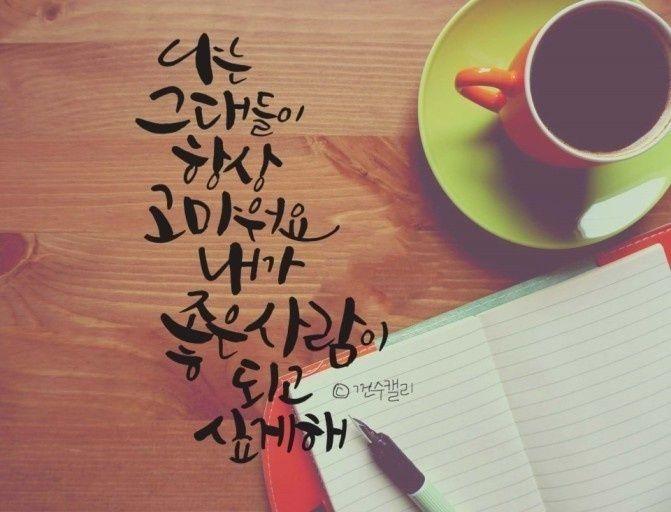 나는
그대들이
항상
고마워요
내가
좋은사람이
되고
싶게해
©껀수캘리